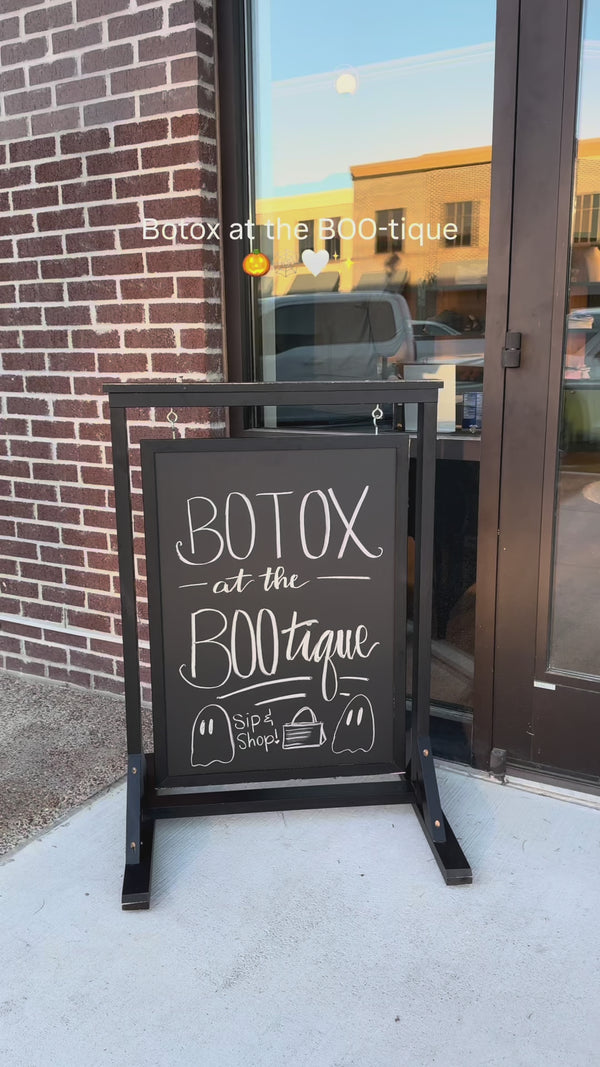 Botox at the BOO-tique
🎃 🤍✨
BOTOX
at the
BOOtique
Sip &
Shop!